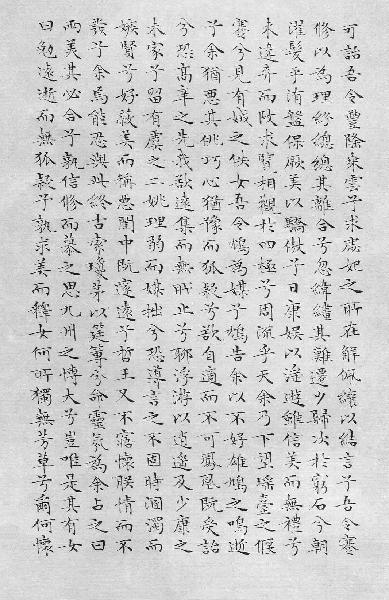 可詒吾令豐隆椉雲兮求虙妃之所在解佩纕以結言兮吾令蹇
修以為理紛總總其離合兮忽緯繣其難遷夕歸次於窮石兮朝
濯髮乎洧盤保厥美以驕傲兮日康娛以淫遊雖信美而無禮兮
來違弃而改求覽相觀於四極兮周流乎天余乃下望瑤臺之偃
蹇兮見有娀之佚女吾令鴆為媒兮鴆告余以不好雄鳩之鳴逝
兮余猶惡其佻巧心猶豫而狐疑兮欲自適而不可鳳凰既受詒
兮恐高辛之先我欲遠集而無所止兮聊浮游以逍遙及少康之
未家兮留有虞之二姚理弱而媒拙兮恐導言之不固時溷濁而
嫉賢兮好蔽美而稱惡閨中既邃遠兮哲王又不寤懷朕情而不
發兮余焉能忍與此終古索瓊茅以筳篿兮命靈氛為余占之曰
兩美其必合兮孰信修而慕之思九州之博大兮豈唯是其有女
曰勉遠逝而無狐疑兮孰求美而釋女何所獨無芳草兮爾何懷